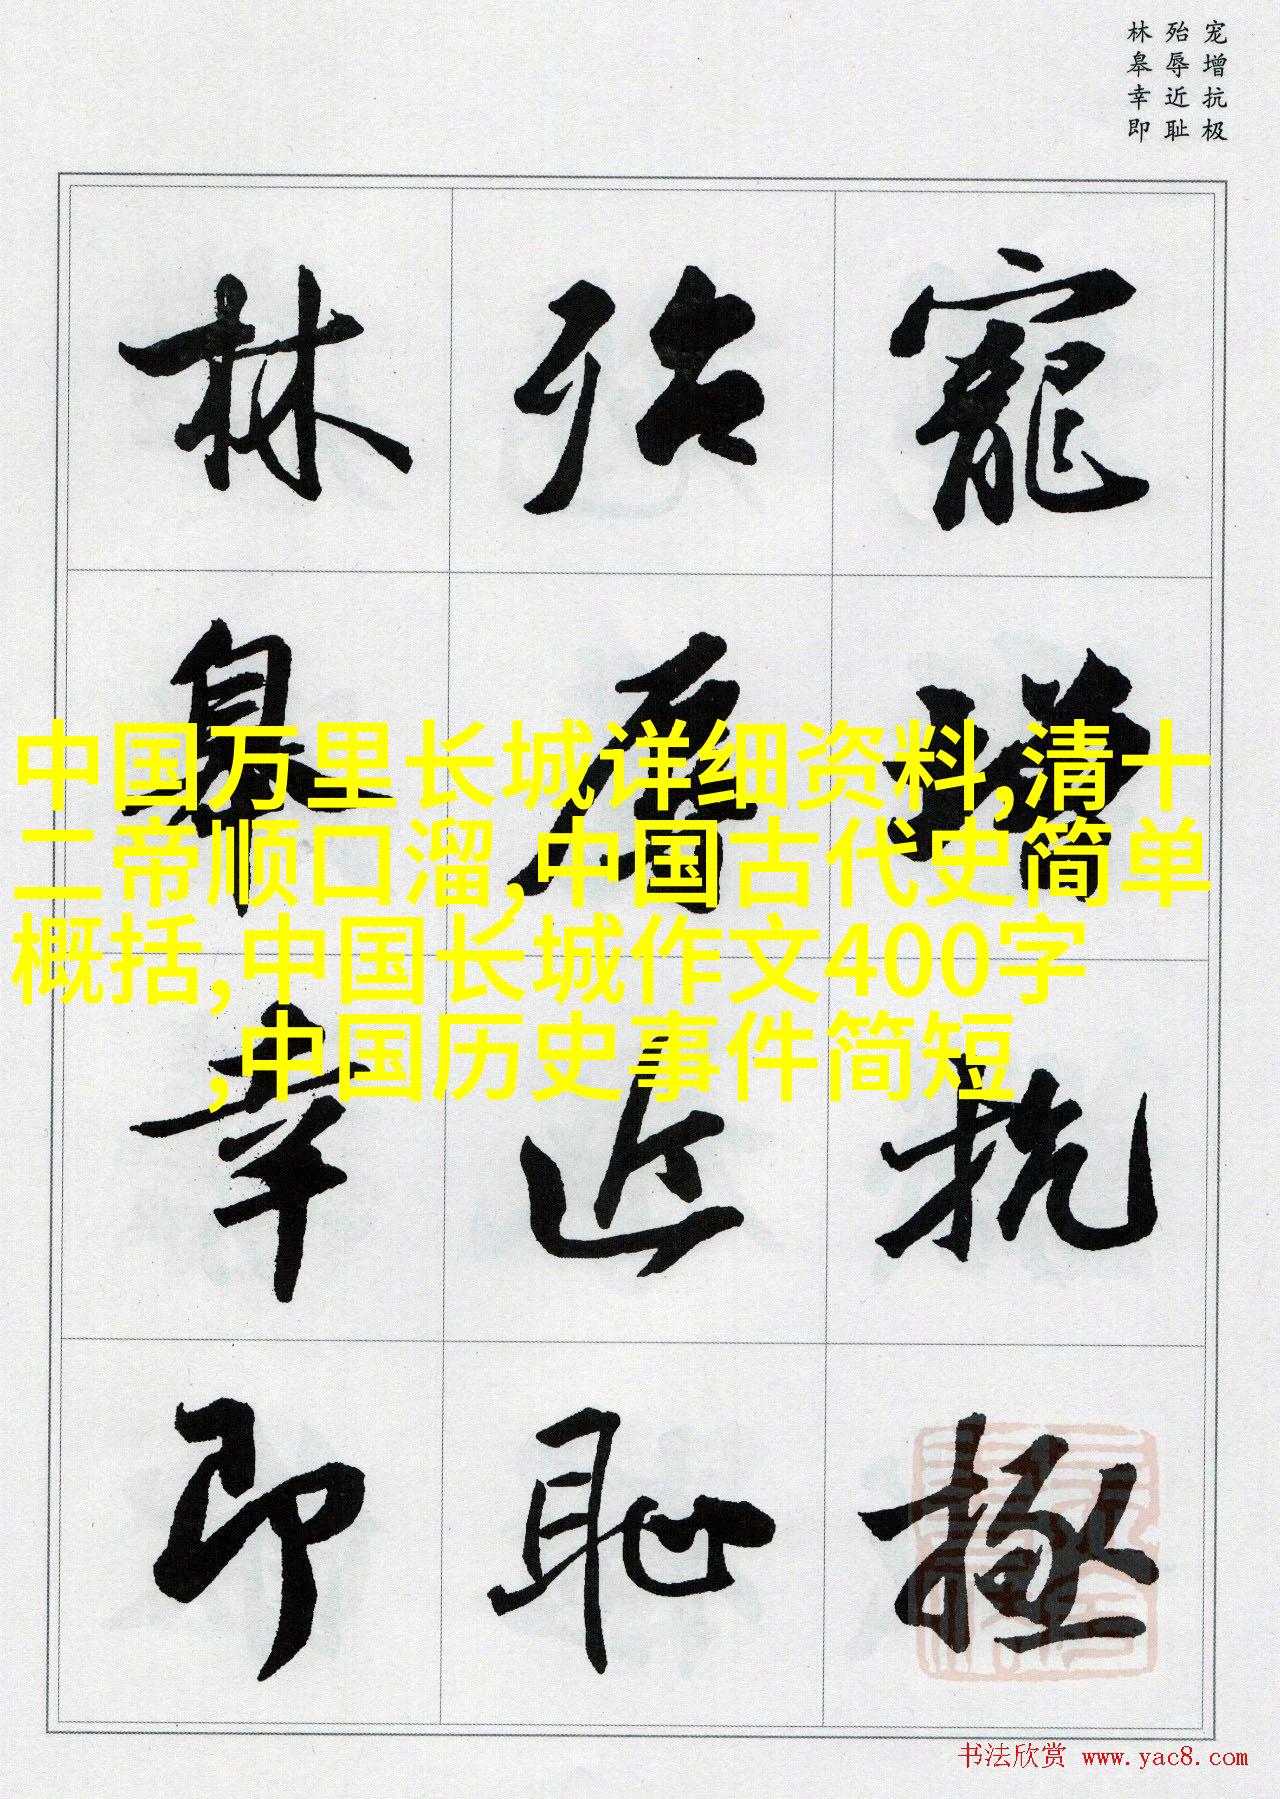 宠增抗极
殆辱近耻
林皋幸即
寵增抗極
殆辱近恥
林皋幸即
中国万里长城详细资料,清十
二帝顺口溜,中国古代史简单
概括,中国长城作文400字
,中国历史事件简短
书法欣赏 www.yac8.com